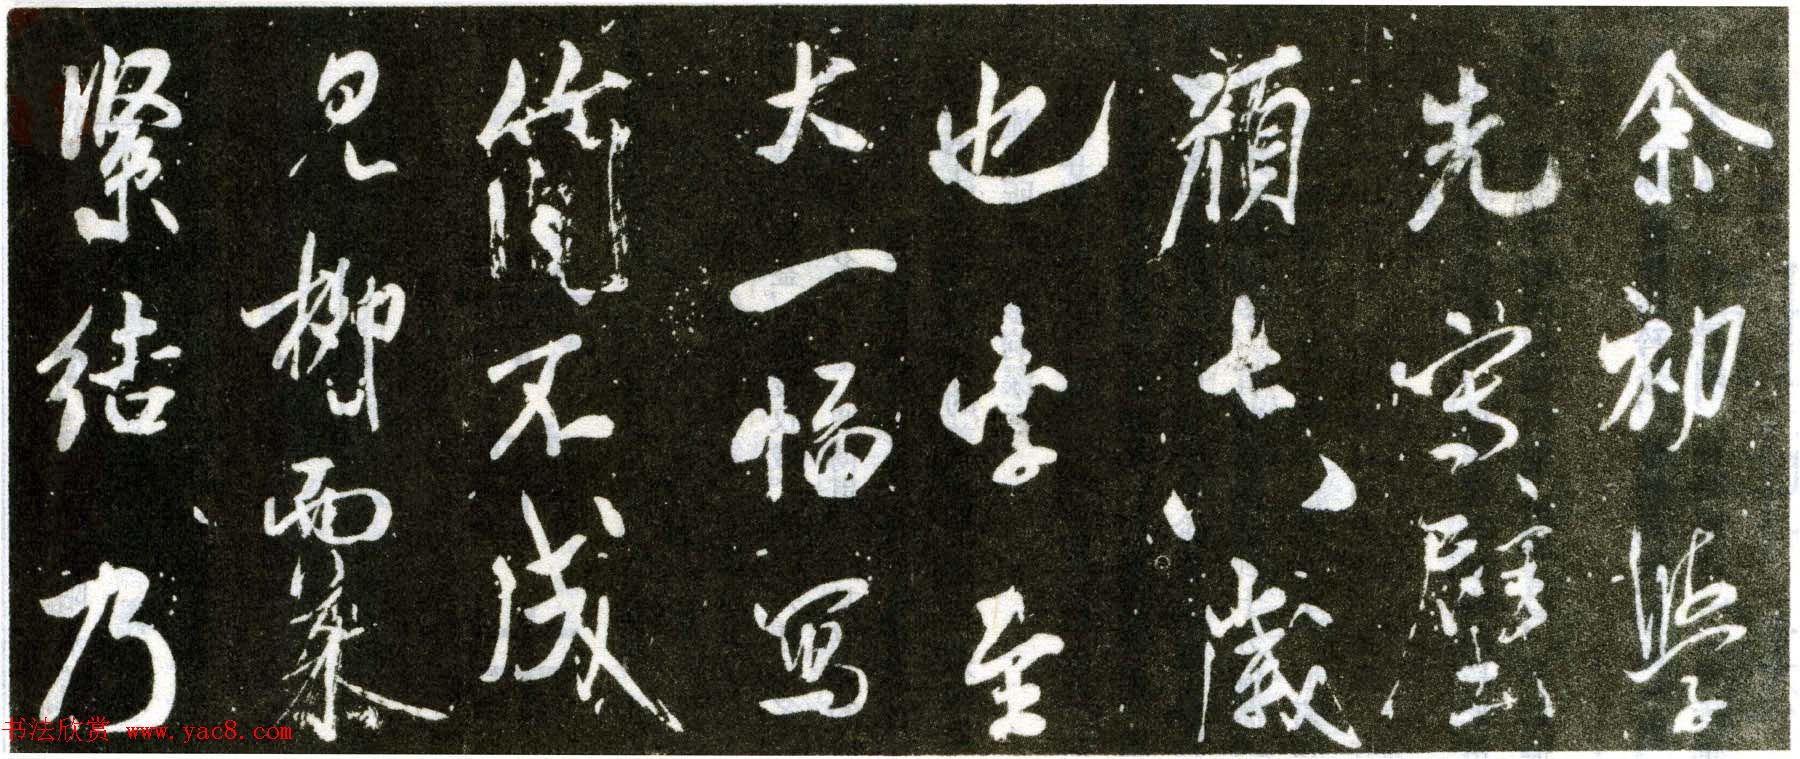 余初學
先寫壁
顏七八歲
也字至
大一幅寫
簡不成
見柳而慕
緊結乃
书法欣赏 www.yac8.com